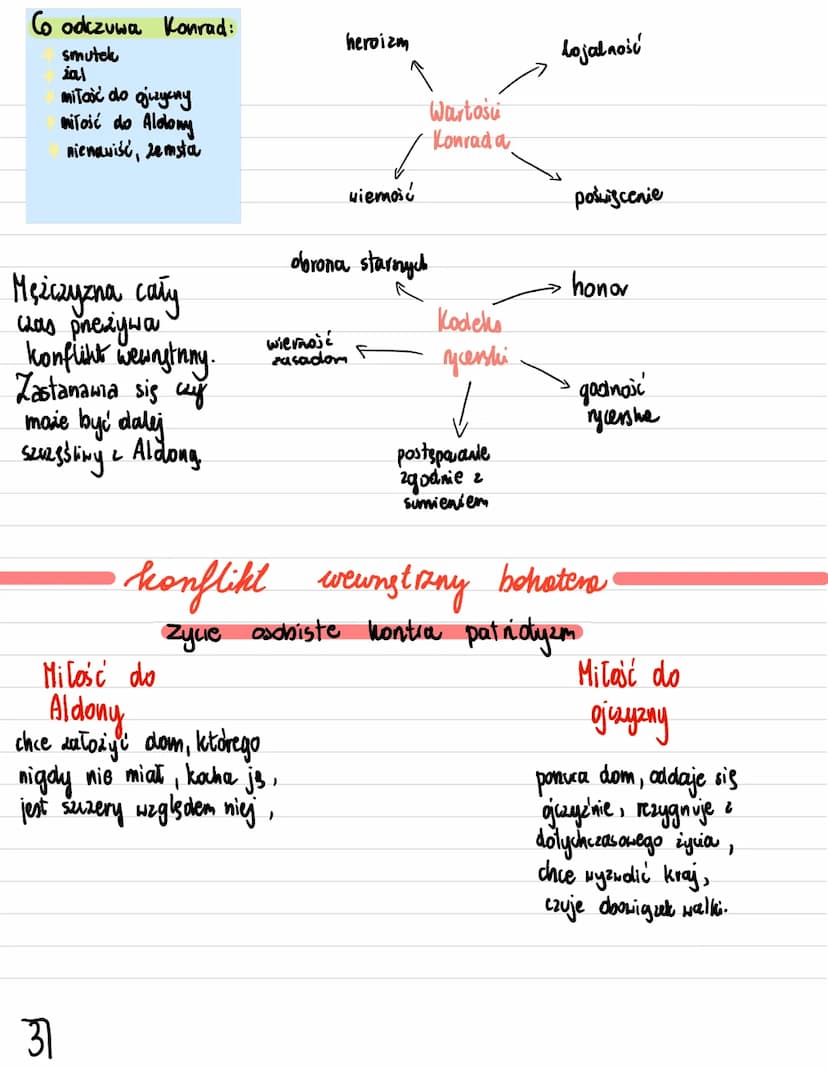 Co odczuwa Konrad:
smutek
żal
miłość do ojczyzny
miłość do Aldony
nienawiść, zemsta
heroizm
lojalność
Wartości
Konrada
wierność
poświęcenie
obrona starszych
honor
Kodeks
rycerski
wierność
zasadom
godność
rycerska
postępowanie
zgodnie z
sumieniem
Mężczyzna cały
czas przeżywa
konflikt wewnętrzny.
Zastanawia się czy
może być dalej
szczęśliwy z Aldoną
konflikt wewnętrzny bohatera
życie osobiste kontra patriotyzm
Miłość do
Aldony
chce założyć dom, którego
nigdy nie miał, kocha ją,
jest szczery względem niej,
Miłość do
ojczyzny
porzuca dom, oddaje się
ojczyźnie, rezygnuje z
dotychczasowego życia,
chce wyzwolić kraj,
czuje obowiązek walki.
3)